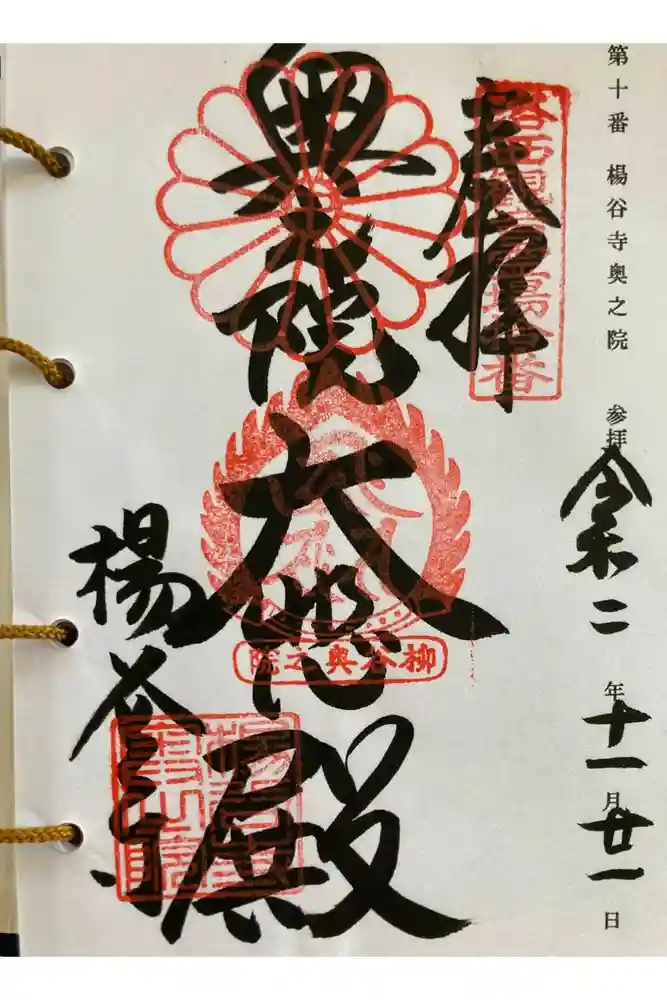 第十番 楊谷寺奥之院 参拝
令和二年十一月廿一日
奉拝
洛西観音霊場拾番
奥之院
大悲殿
柳谷奥之院
楊谷寺